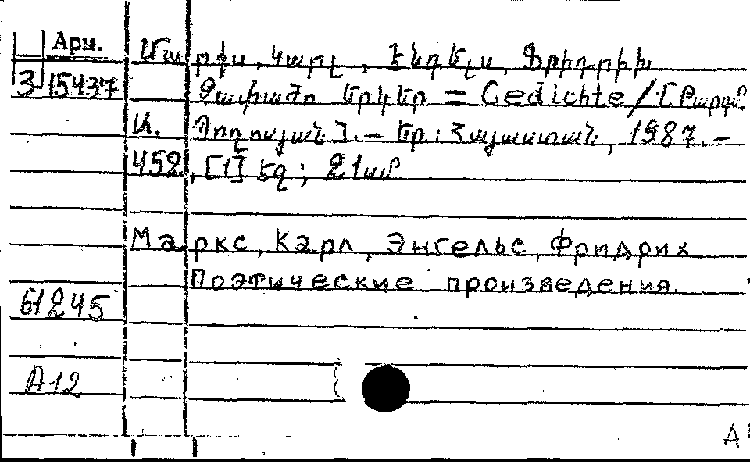 Арм.
Մարքս, Կարլ, Էնգելս, Ֆրիդրիխ
3 15437
Չափածո երկեր = Gedichte / [Թարգմ.
Ա. Պողոսյան]. – Եր.: Հայաստան, 1987. –
452, [1] էջ; 21սմ
Маркс, Карл, Энгельс, Фридрих
Поэтические произведения.
61245
A12